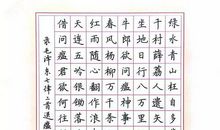 绿水青山枉自多
千村薜荔人遗矢
坐地日行八万里
牛郎欲问瘟神事
春风杨柳万千条
红雨随心翻作浪
天连五岭银锄落
借问瘟君欲何往
录毛泽东七律二首送瘟